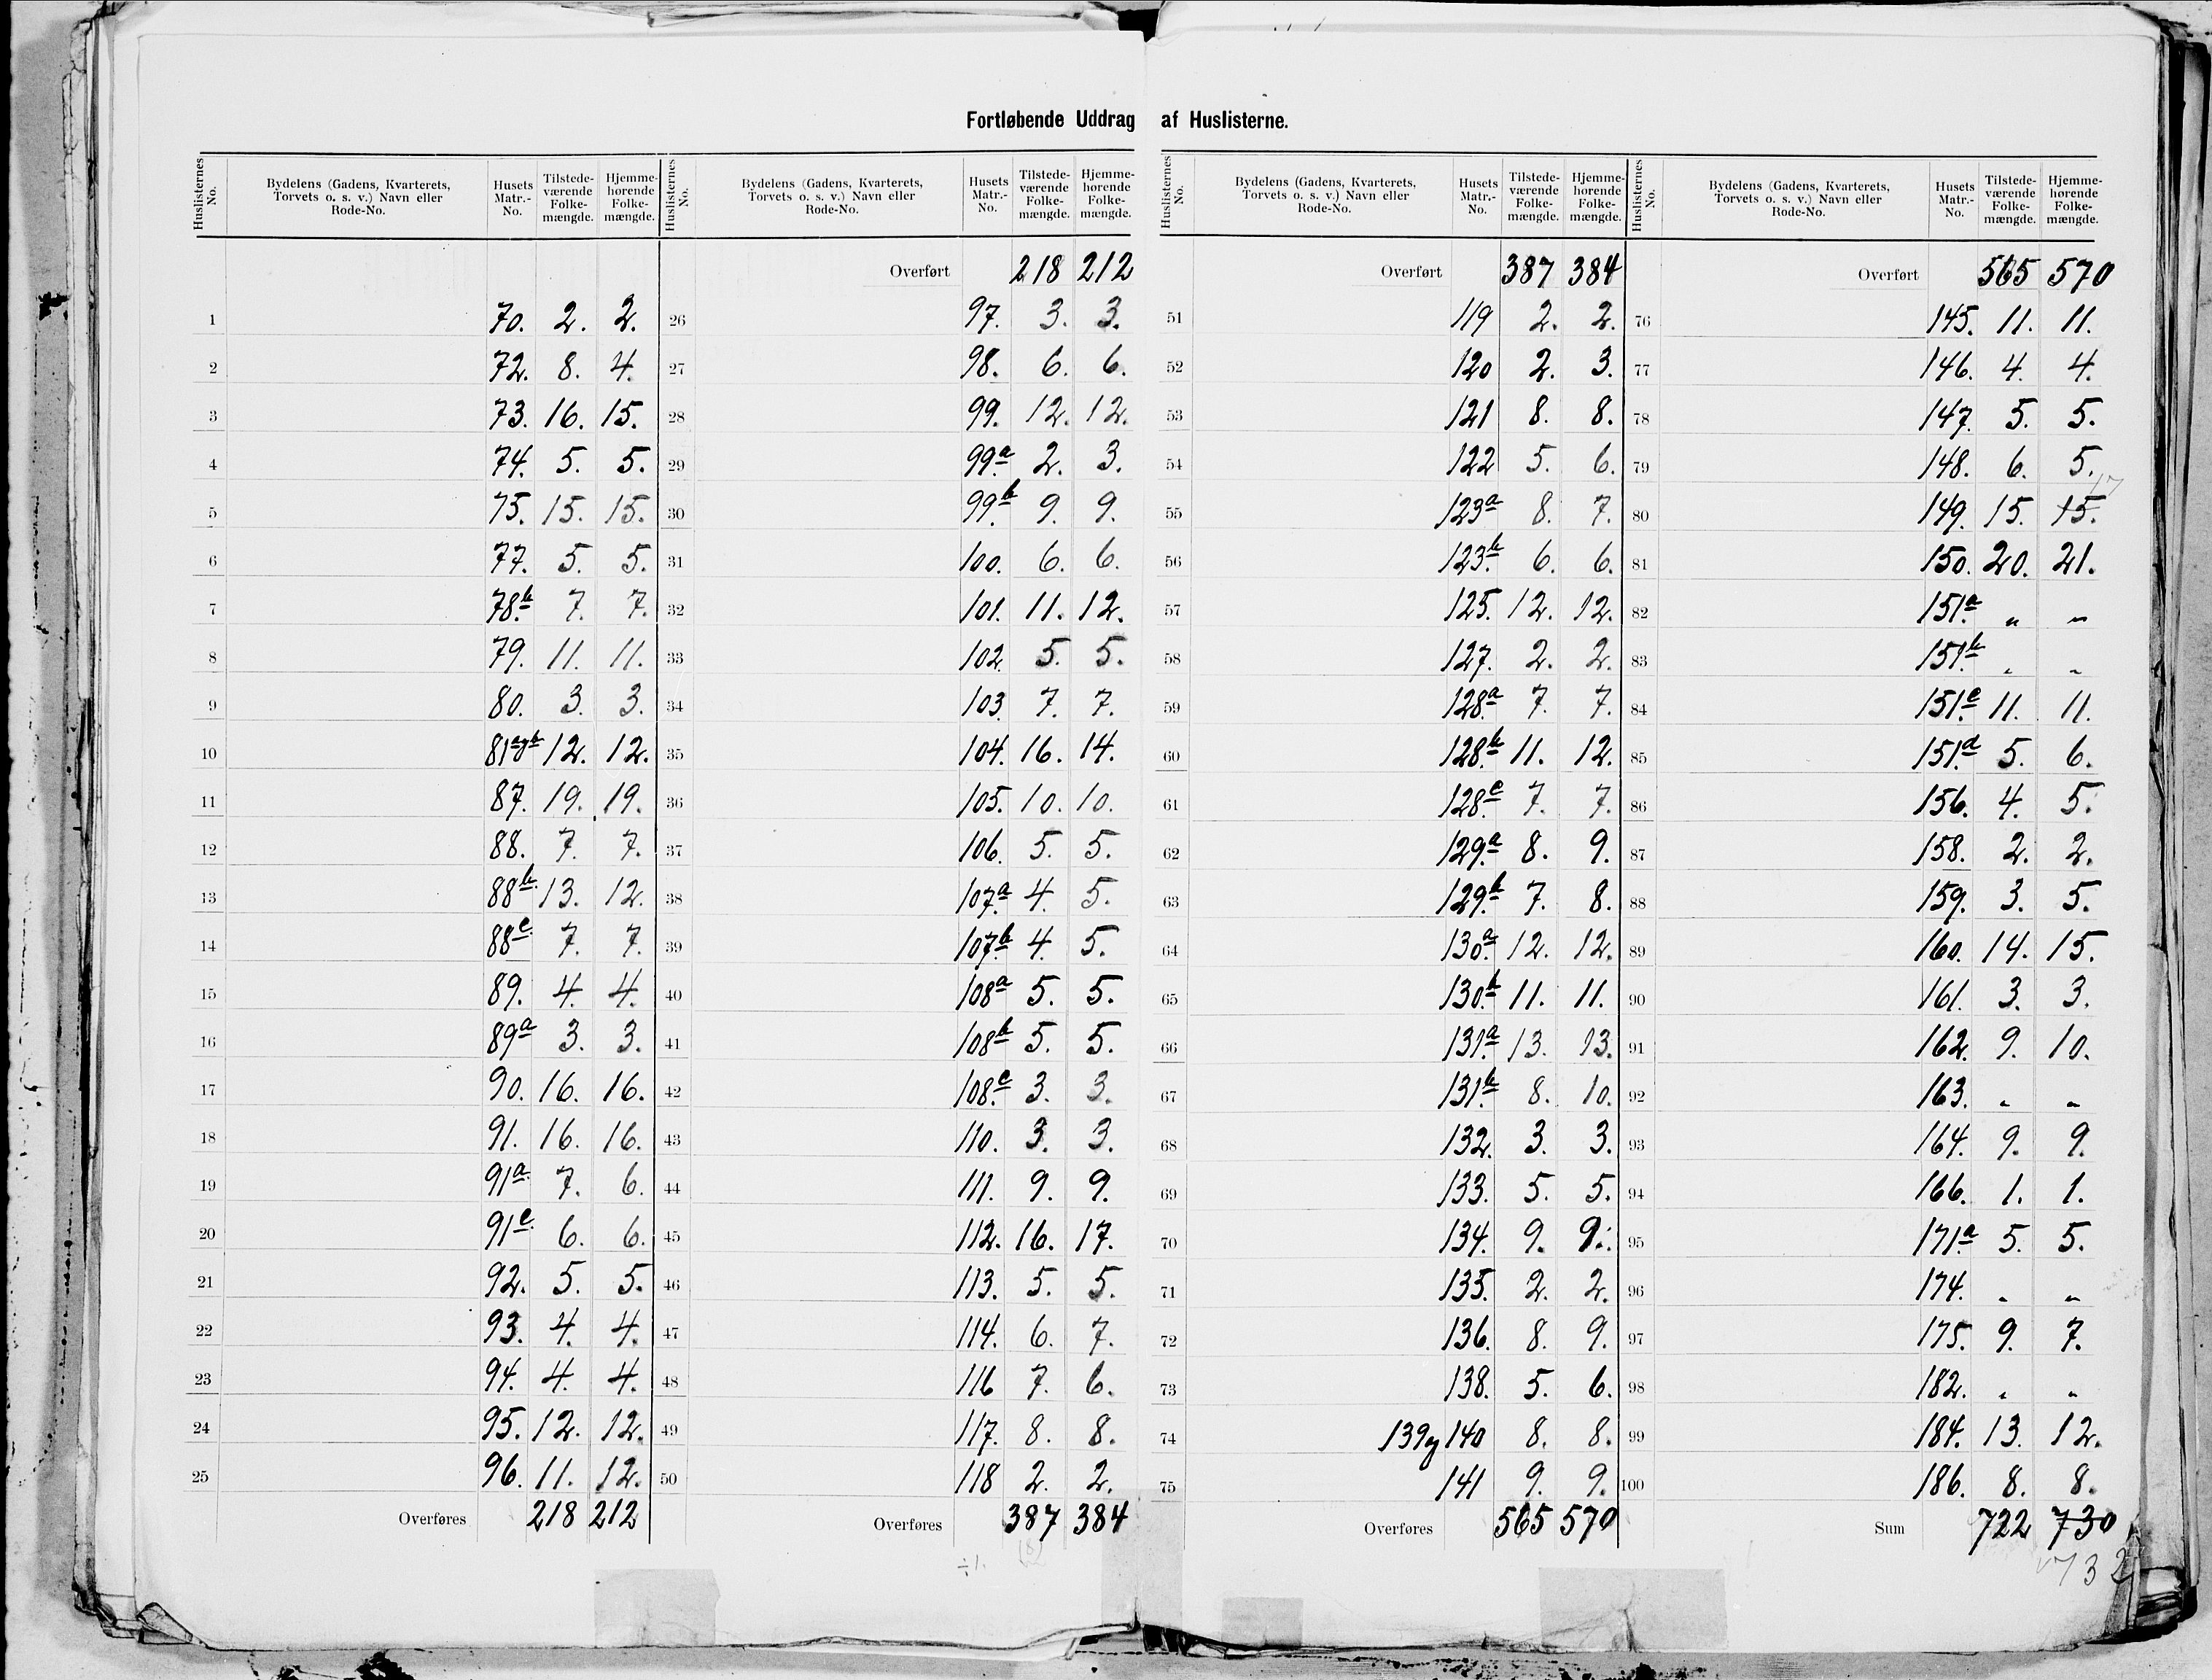 Fortløbende Uddrag af Huslisterne.
Huslisternes No. | Bydelens (Gadens, Kvarterets, Torvets o. s. v.) Navn eller Rode-No. | Husets Matr.-No. | Tilstede-værende Folke-mængde. | Hjemme-hørende Folke-mængde.
1 70. 2. 2.
2 72. 8. 4.
3 73. 16. 15.
4 74. 5. 5.
5 75. 15. 15.
6 77. 5. 5.
7 78b. 7. 7.
8 79. 11. 11.
9 80. 3. 3.
10 81a og b 12. 12.
11 87. 19. 19.
12 88. 7. 7.
13 88b. 13. 12.
14 88c. 7. 7.
15 89. 4. 4.
16 89a 3. 3.
17 90. 16. 16.
18 91. 16. 16.
19 91a. 7. 6.
20 91c. 6. 6.
21 92. 5. 5.
22 93. 4. 4.
23 94. 4. 4.
24 95. 12. 12.
25 96. 11. 12.
Overføres 218 212
Huslisternes No. | Bydelens (Gadens, Kvarterets, Torvets o. s. v.) Navn eller Rode-No. | Husets Matr.-No. | Tilstede-værende Folke-mængde. | Hjemme-hørende Folke-mængde.
Overført 218 212
26 97. 3. 3.
27 98. 6. 6.
28 99. 12. 12.
29 99a 2. 3.
30 99b. 9. 9.
31 100. 6. 6.
32 101. 11. 12.
33 102. 5. 5.
34 103. 7. 7.
35 104. 16. 14.
36 105. 10. 10.
37 106. 5. 5.
38 107a 4. 5.
39 107b. 4. 5.
40 108a 5. 5.
41 108b 5. 5.
42 108c. 3. 3.
43 110. 3. 3.
44 111. 9. 9.
45 112. 16. 17.
46 113. 5. 5.
47 114. 6. 7.
48 116 7. 6.
49 117. 8. 8.
50 118 2. 2.
Overføres 387 384
Huslisternes No. | Bydelens (Gadens, Kvarterets, Torvets o. s. v.) Navn eller Rode-No. | Husets Matr.-No. | Tilstede-værende Folke-mængde. | Hjemme-hørende Folke-mængde.
Overført 387 384
51 119 2. 2.
52 120 2. 3.
53 121 8. 8.
54 122 5. 6.
55 123a 8. 7.
56 123b. 6. 6.
57 125. 12. 12.
58 127. 2. 2.
59 128a 7. 7.
60 128b. 11. 12.
61 128c 7. 7.
62 129a 8. 9.
63 129b 7. 8.
64 130a. 12. 12.
65 130b. 11. 11.
66 131a 13. 13.
67 131b 8. 10.
68 132. 3. 3.
69 133. 5. 5.
70 134. 9. 9.
71 135. 2. 2.
72 136. 8. 9.
73 138. 5. 6.
74 139 og 140 8. 8.
75 141 9. 9.
Overføres 565 570
Huslisternes No. | Bydelens (Gadens, Kvarterets, Torvets o. s. v.) Navn eller Rode-No. | Husets Matr.-No. | Tilstede-værende Folke-mængde. | Hjemme-hørende Folke-mængde.
Overført 565 570
76 145. 11. 11.
77 146. 4. 4.
78 147. 5. 5.
79 148. 6. 5.
80 149. 15. 15. 17
81 150. 20. 21.
82 151a. " "
83 151b. " "
84 151c. 11. 11.
85 151d. 5. 6.
86 156. 4. 5.
87 158. 2. 2.
88 159. 3. 5.
89 160. 14. 15.
90 161. 3. 3.
91 162. 9. 10.
92 163. " "
93 164. 9. 9.
94 166. 1. 1.
95 171a 5. 5.
96 174. " "
97 175. 9. 7.
98 182. " "
99 184. 13. 12.
100 186. 8. 8.
Sum 722 730
732